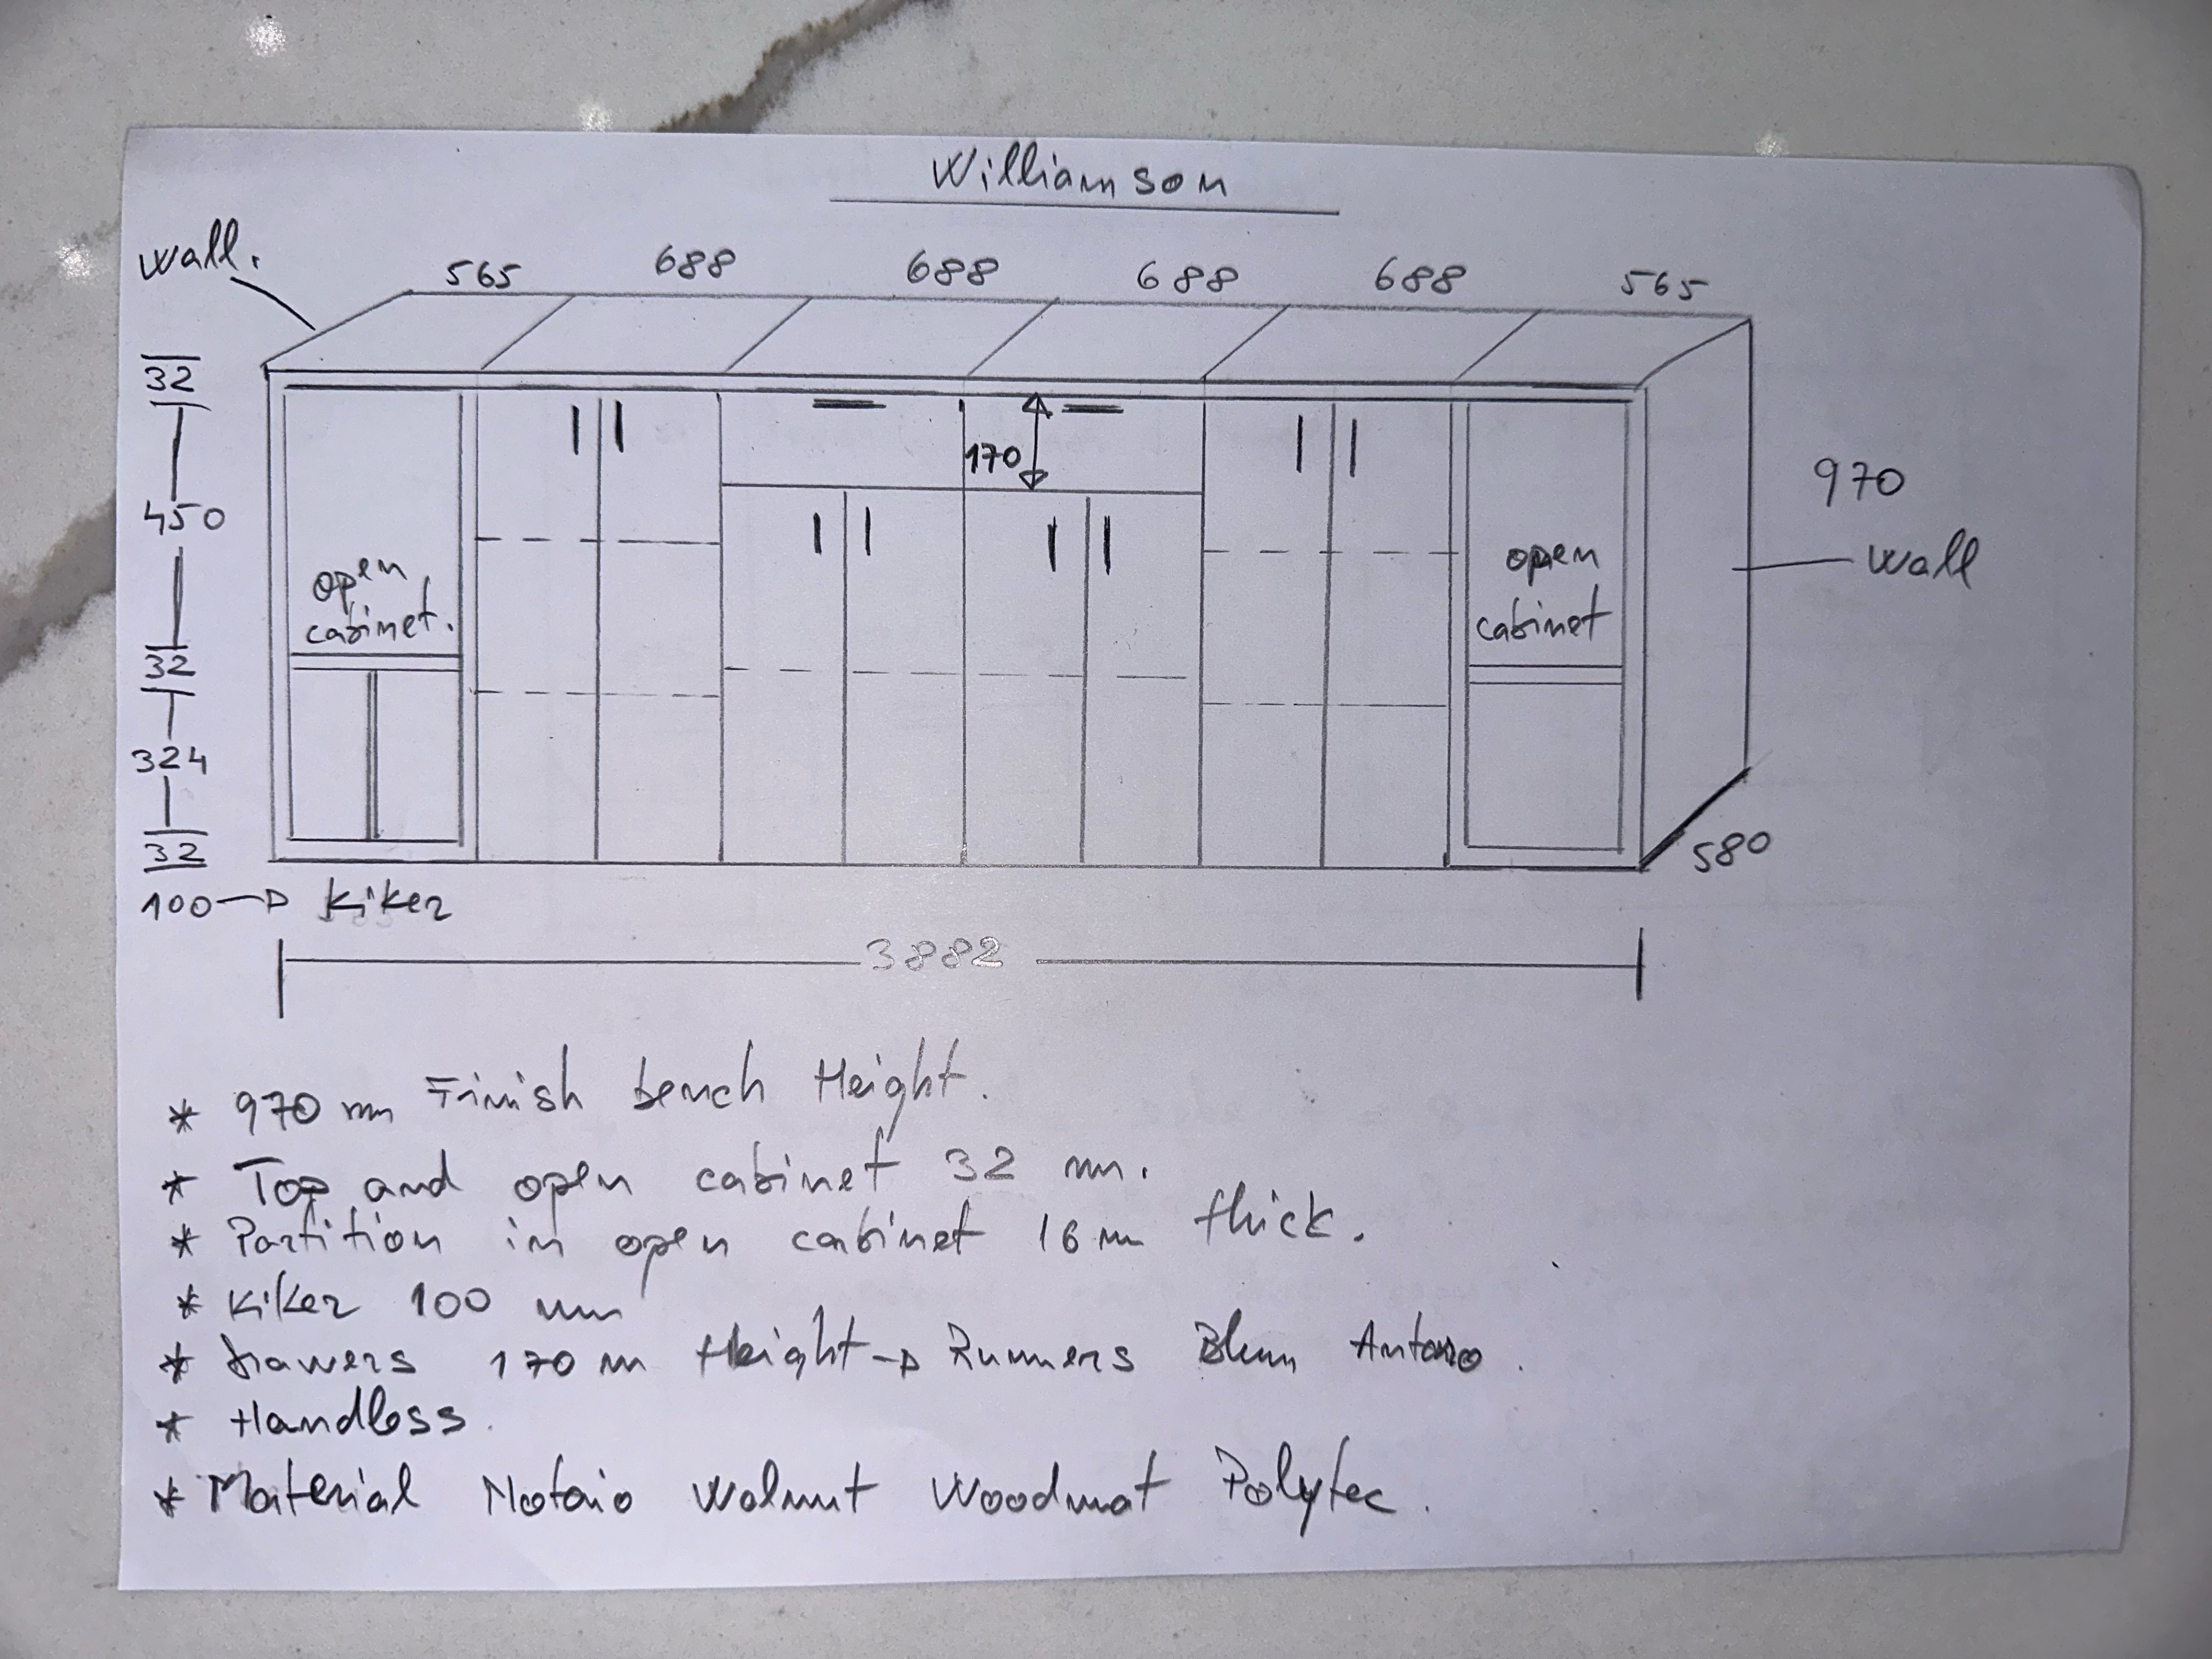 Williamson
wall.
565 688 688 688 688 565
32
450
32
324
32
100 → kiker
170
open
cabinet.
open
cabinet
970
wall
580
3882
* 970 mm Finish bench Height.
* Top and open cabinet 32 mm.
* Partition in open cabinet 16 m thick.
* kiker 100 mm
* drawers 170 m Height → Runners Blum Antaro.
* Handless.
* Material Notaio Walnut Woodmat Polytec.